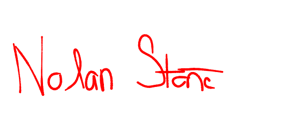 Nolan Stone